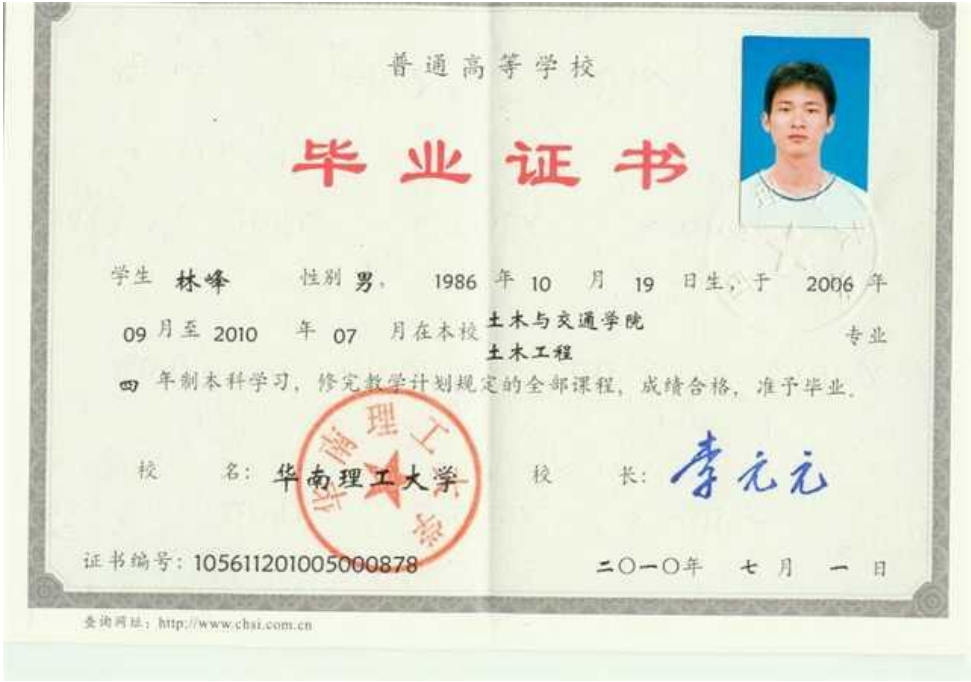 普通高等学校
毕业证书
学生 林峰 性别 男， 1986 年 10 月 19 日生，于 2006 年
09 月至 2010 年 07 月在本校 土木与交通学院 土木工程 专业
四 年制本科学习，修完教学计划规定的全部课程，成绩合格，准予毕业。
校 名： 华南理工大学 校 长： 李元元
华南理工大学
证书编号：105611201005000878 二〇一〇年 七 月 一 日
查询网址：http://www.chsi.com.cn